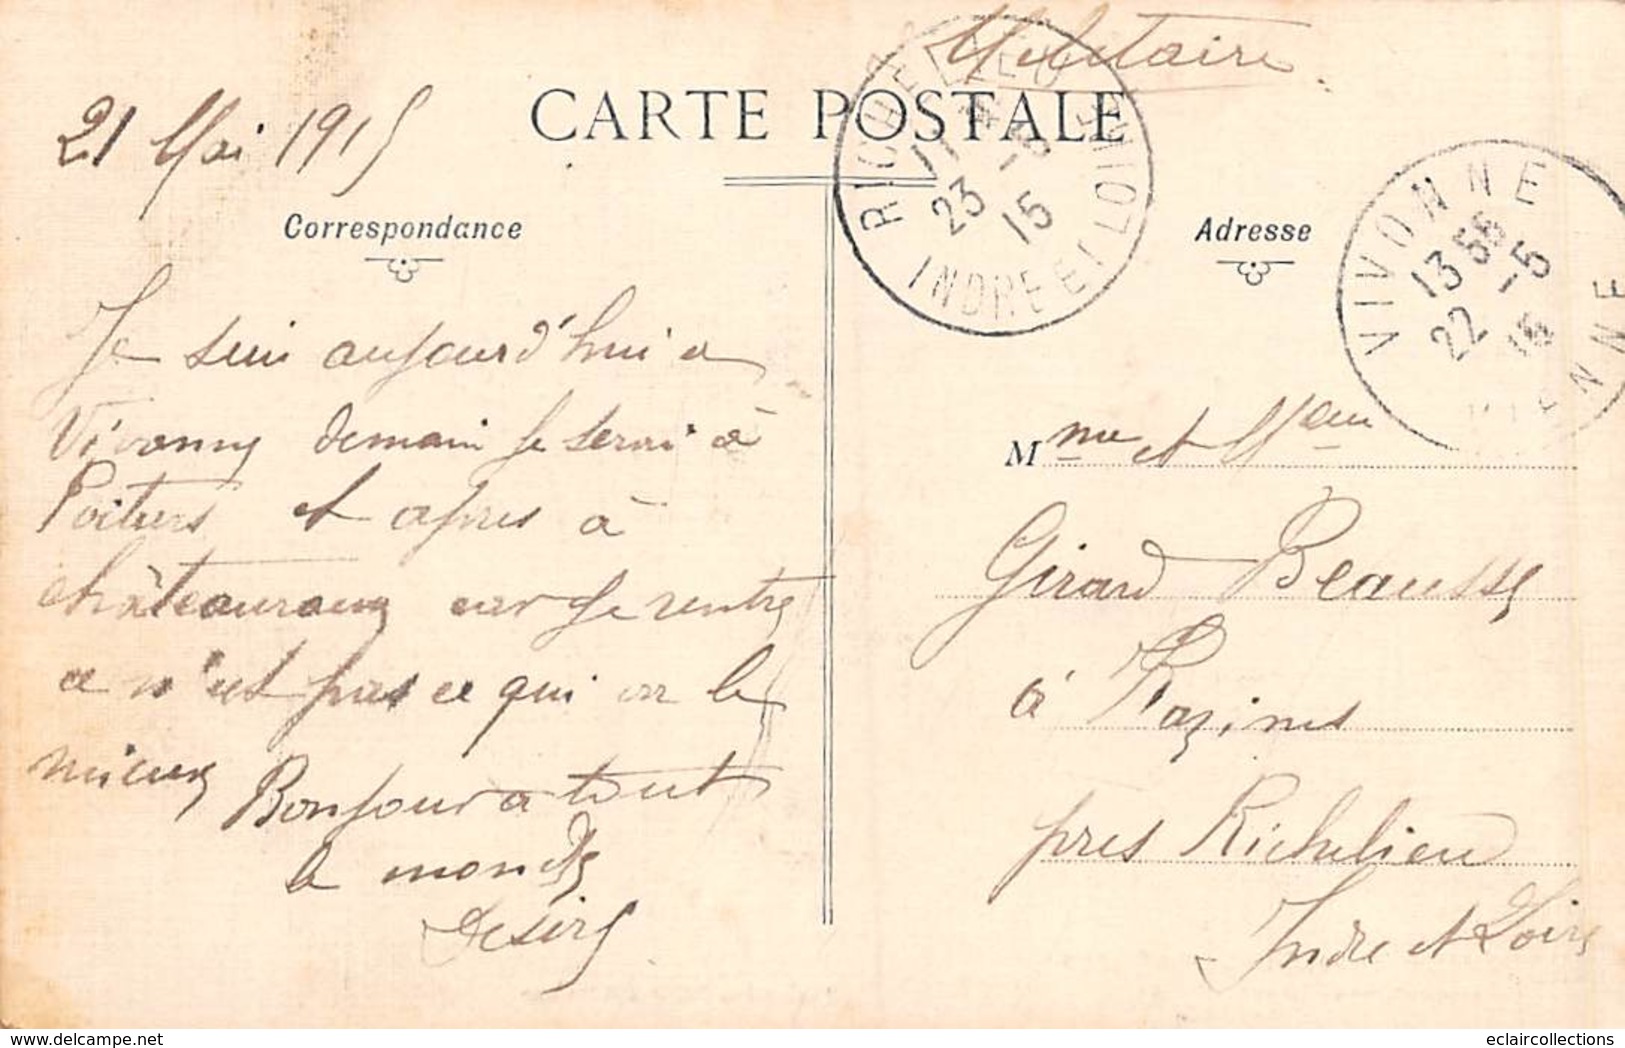 Militaire
21 Mai 1915
CARTE POSTALE
RICHELIEU
23 -5
15
INDRE ET LOIRE
VIVONNE
13 55
22 -5
15
VIENNE
Correspondance
Adresse
Je suis aujourd'hui a
Vivonne demain je serai à
Poitiers et apres à
châteauroux car je rentre
ce n'est pas ce qui va le
mieux Bonjour a tout
le monde
Desiré
Mme et M
Girard Beausse
à Razines
pres Richelieu
Indre et Loire
eclaircollections